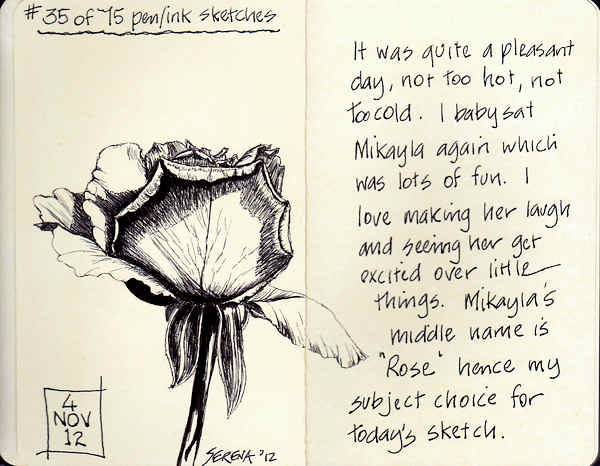 #35 of 75 pen/ink sketches
4
NOV
12
SERENA '12
It was quite a pleasant
day, not too hot, not
too cold. I babysat
Mikayla again which
was lots of fun. I
love making her laugh
and seeing her get
excited over little
things. Mikayla's
middle name is
"Rose" hence my
subject choice for
today's sketch.